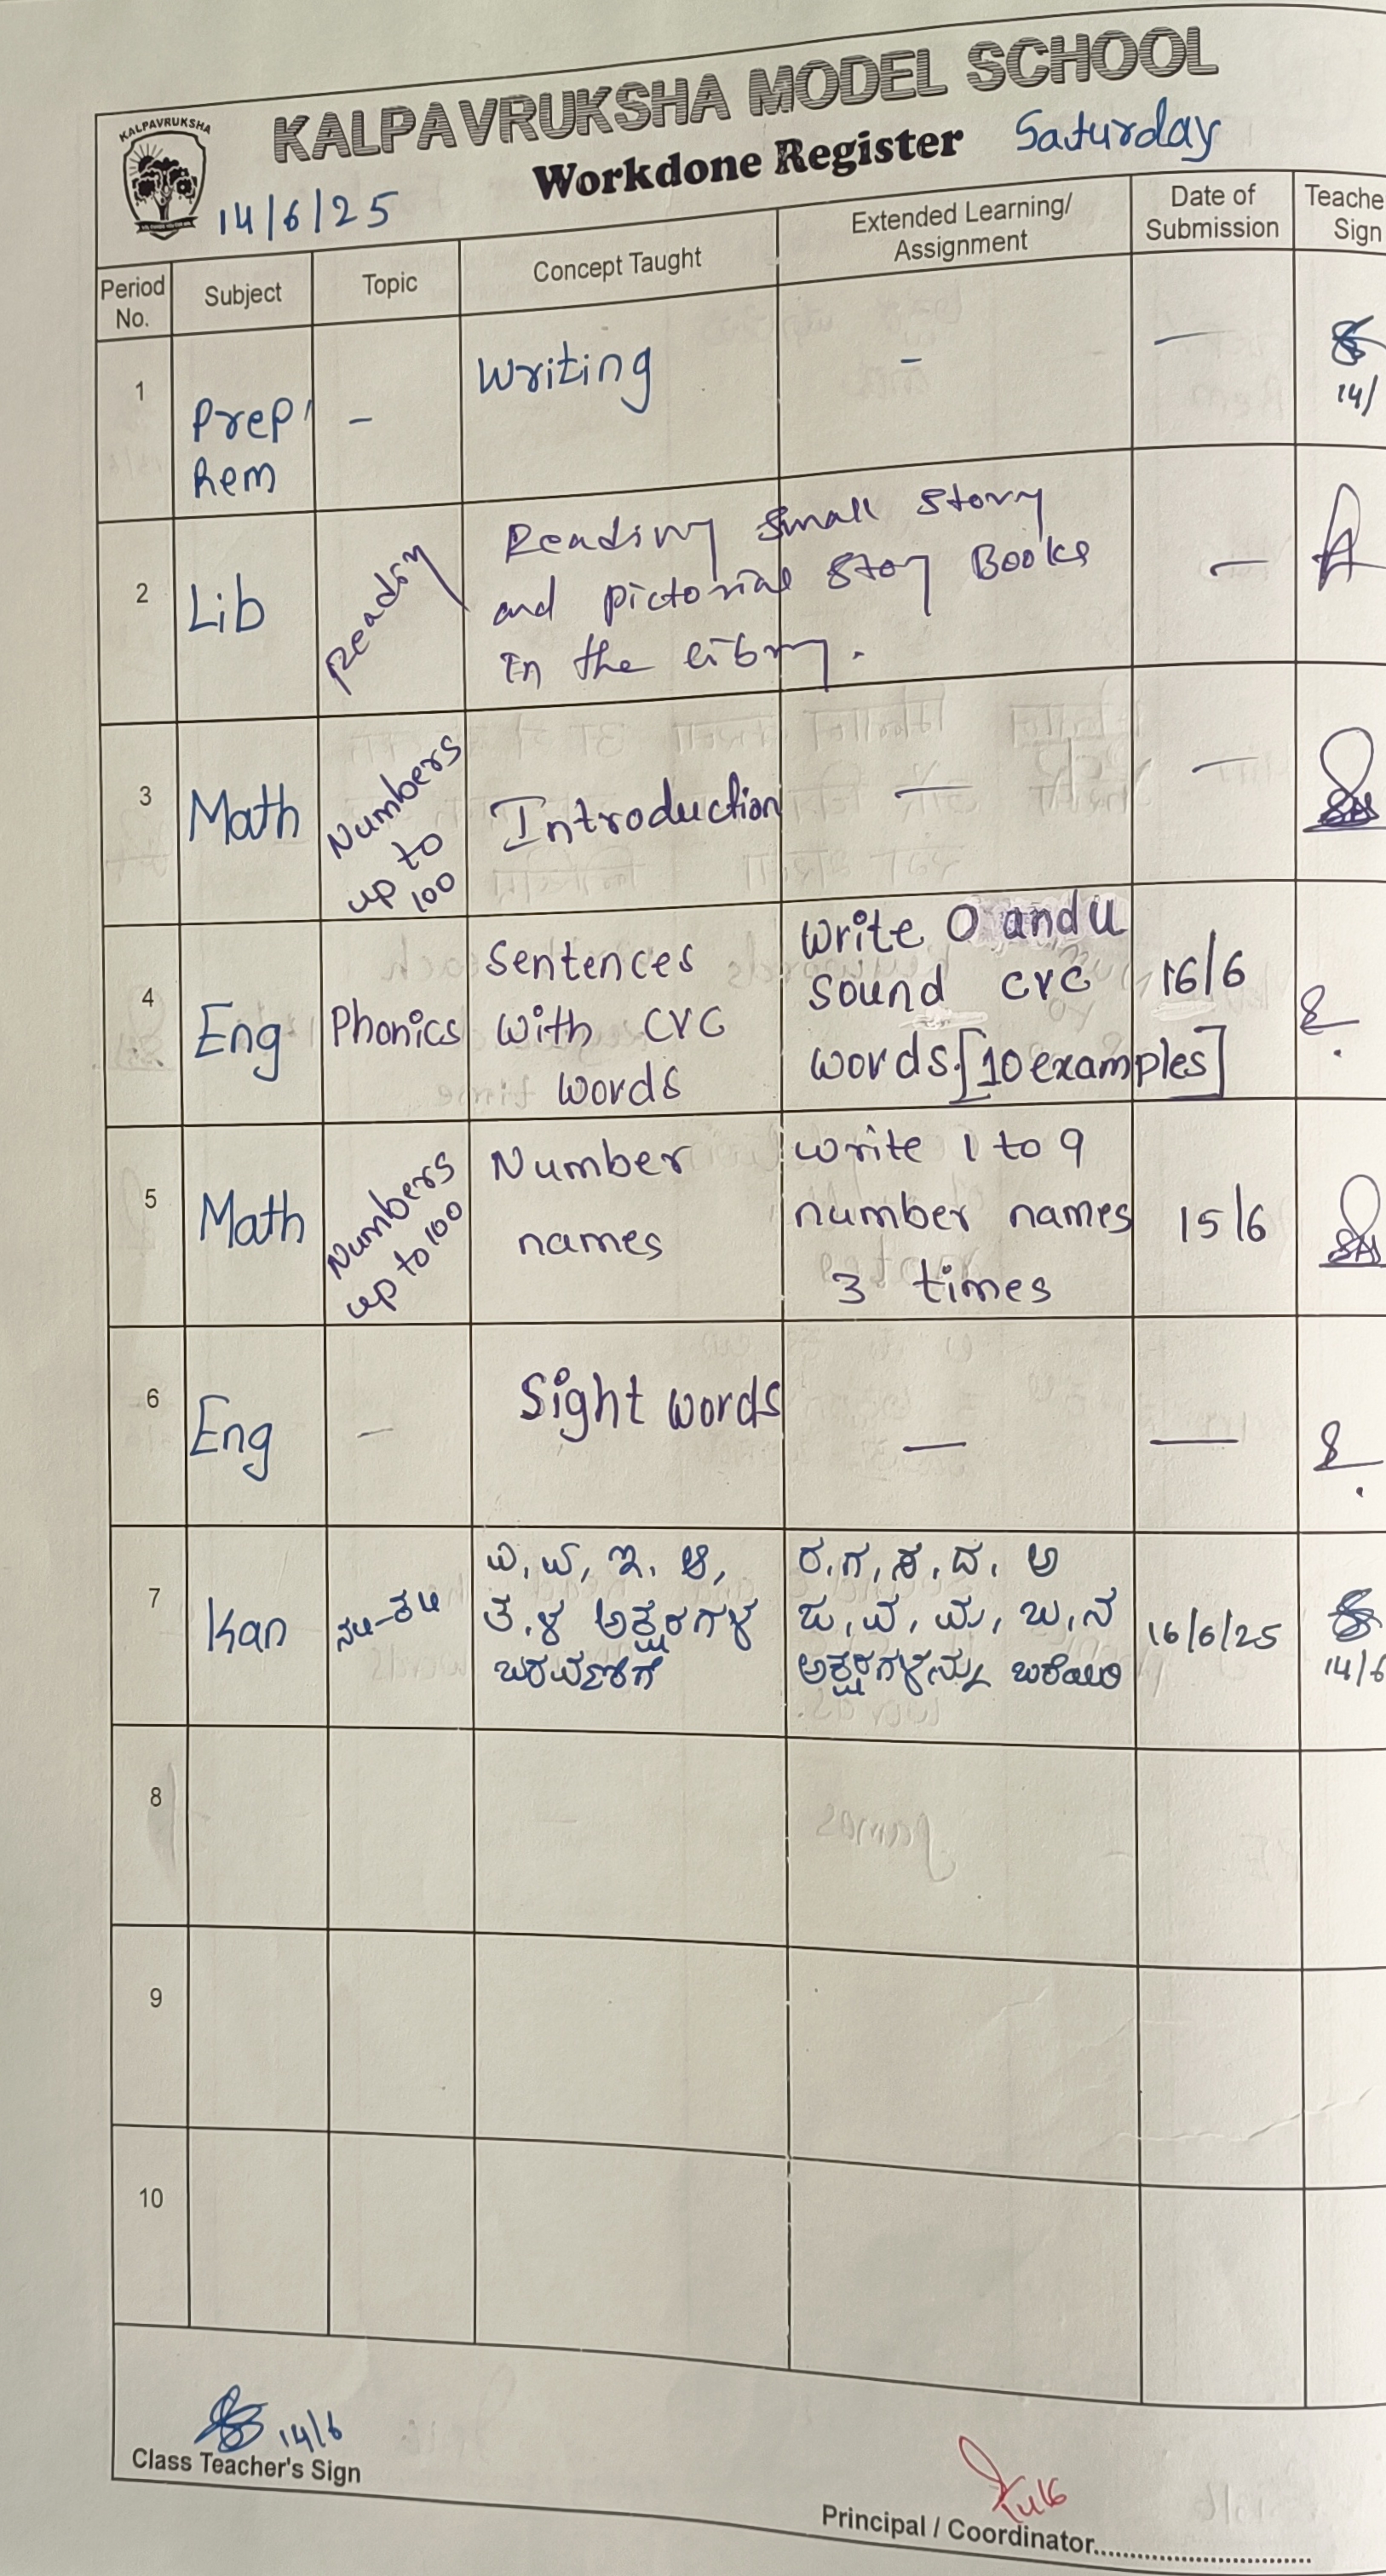 KALPAVRUKSHA MODEL SCHOOL
KALPAVRUKSHA
Workdone Register Saturday
14/6/25
Period No.
Subject
Topic
Concept Taught
Extended Learning/
Assignment
Date of
Submission
Teache
Sign
1
Prep'
Rem
-
Writing
-
—
14/
2
Lib
Reading
Reading small story
and pictorial story Books
In the library.
—
3
Math
Numbers
up to
100
Introduction
—
—
4
Eng
Phonics
Sentences
with CVC
words
Write O and u
sound cvc
words.[10 examples]
16/6
5
Math
Numbers
up to 100
Number
names
write 1 to 9
number names
3 times
15/6
6
Eng
—
Sight words
—
—
7
Kan
ನಲಿ-ಕಲಿ
ಅಕ್ಷರಗಳ
ಬರವಣಿಗೆ
ರ, ಗ, ಸ, ದ, ಅ
ಜ, ವ, ಮ, ಬ, ನ
ಅಕ್ಷರಗಳನ್ನು ಬರೆಯಿರಿ
16/6/25
14/6
8
9
10
14/6
Class Teacher's Sign
Principal / Coordinator